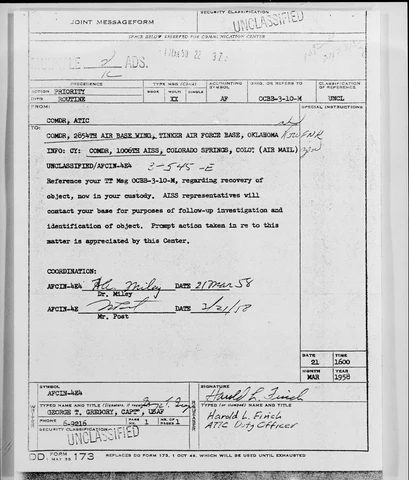 SECURITY CLASSIFICATION
JOINT MESSAGEFORM
UNCLASSIFIED
SPACE BELOW RESERVED FOR COMMUNICATION CENTER
2 ADS.
PRECEDENCE
TYPE MSG (Check)
ACCOUNTING SYMBOL
ORIG. OR REFERS TO
CLASSIFICATION OF REFERENCE
ACTION PRIORITY
BOOK MULTI SINGLE
ROUTINE
XX
AF
OCBB-3-10-M
UNCL
FROM:
SPECIAL INSTRUCTIONS
COMDR, ATIC
TO:
COMDR, 2854TH AIR BASE WING, TINKER AIR FORCE BASE, OKLAHOMA
INFO: CY: COMDR, 1006TH AISS, COLORADO SPRINGS, COLO: (AIR MAIL)
UNCLASSIFIED/AFCIN-4E4 3-545-E
Reference your TT Msg OCBB-3-10-M, regarding recovery of
object, now in your custody. AISS representatives will
contact your base for purposes of follow-up investigation and
identification of object. Prompt action taken in re to this
matter is appreciated by this Center.
COORDINATION:
AFCIN-4E4 Miley DATE 21 Mar 58
Dr. Miley
AFCIN-4E Post DATE 3/21/58
Mr. Post
DATE TIME
21 1600
MONTH YEAR
MAR 1958
SYMBOL
AFCIN-4E4
SIGNATURE
Harold L. Finch
TYPED NAME AND TITLE (Signature, if required)
GEORGE T. GREGORY, CAPT, USAF
TYPED (or stamped) NAME AND TITLE
Harold L. Finch
ATIC Duty Officer
PHONE 6-9216
PAGE NR. 1
NR. OF PAGES 1
SECURITY CLASSIFICATION
UNCLASSIFIED
DD FORM 173
REPLACES DD FORM 173, 1 OCT 49, WHICH WILL BE USED UNTIL EXHAUSTED